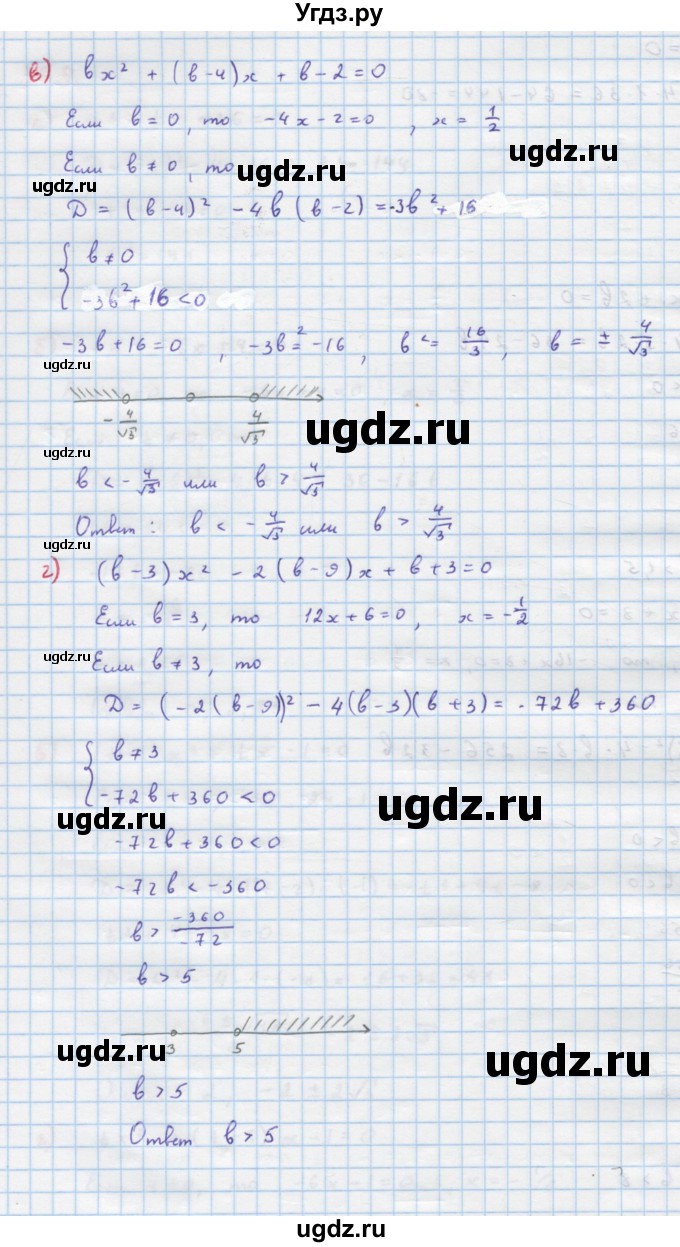 Угдз.ру
в) вx² + (в-4)x + в-2=0
Если в=0, то -4x-2=0, x = 1/2
Если в≠0, то
ugdz.ru ugdz.ru ugdz.ru
D = (в-4)² - 4в(в-2) = -3в² + 16
{ в≠0
-3в²+16<0
-3в+16=0, -3в²=-16, в² = 16/3, в = ± 4/√3
ugdz.ru
-4/√3 4/√3
ugdz.ru
ugdz.ru
в < -4/√3 или в > 4/√3
Ответ: в < -4/√3 или в > 4/√3
ugdz.ru
г) (в-3)x² - 2(в-9)x + в+3=0
Если в=3, то 12x+6=0, x = -1/2
ugdz.ru
Если в≠3, то
D = (-2(в-9))² - 4(в-3)(в+3) = -72в + 360
{ в≠3
-72в+360<0
ugdz.ru ugdz.ru
-72в+360<0
-72в<-360
в > -360/-72
в > 5
3 5
ugdz.ru ugdz.ru
в > 5
Ответ в > 5
ugdz.ru ugdz.ru
ugdz.ru